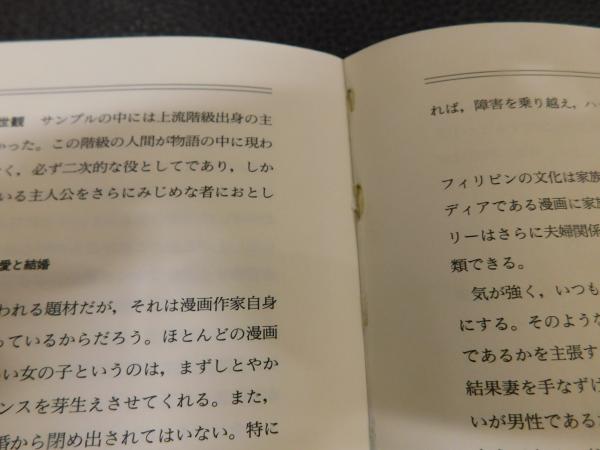 世観 サンブルの中には上流階級出身の主
かった。この階級の人間が物語の中に現わ
く，必ず二次的な役としてであり，しか
いる主人公をさらにみじめな者におとし
愛と結婚
われる題材だが，それは漫画作家自身
っているからだろう。ほとんどの漫画
い女の子というのは，まずしとやか
ンスを芽生えさせてくれる。また，
婚から閉め出されてはいない。特に
れば，障害を乗り越え，ハ
フィリピンの文化は家族
ディアである漫画に家族
リーはさらに夫婦関係
類できる。
気が強く，いつも
にする。そのような
であるかを主張す
結果妻を手なずけ
いが男性である